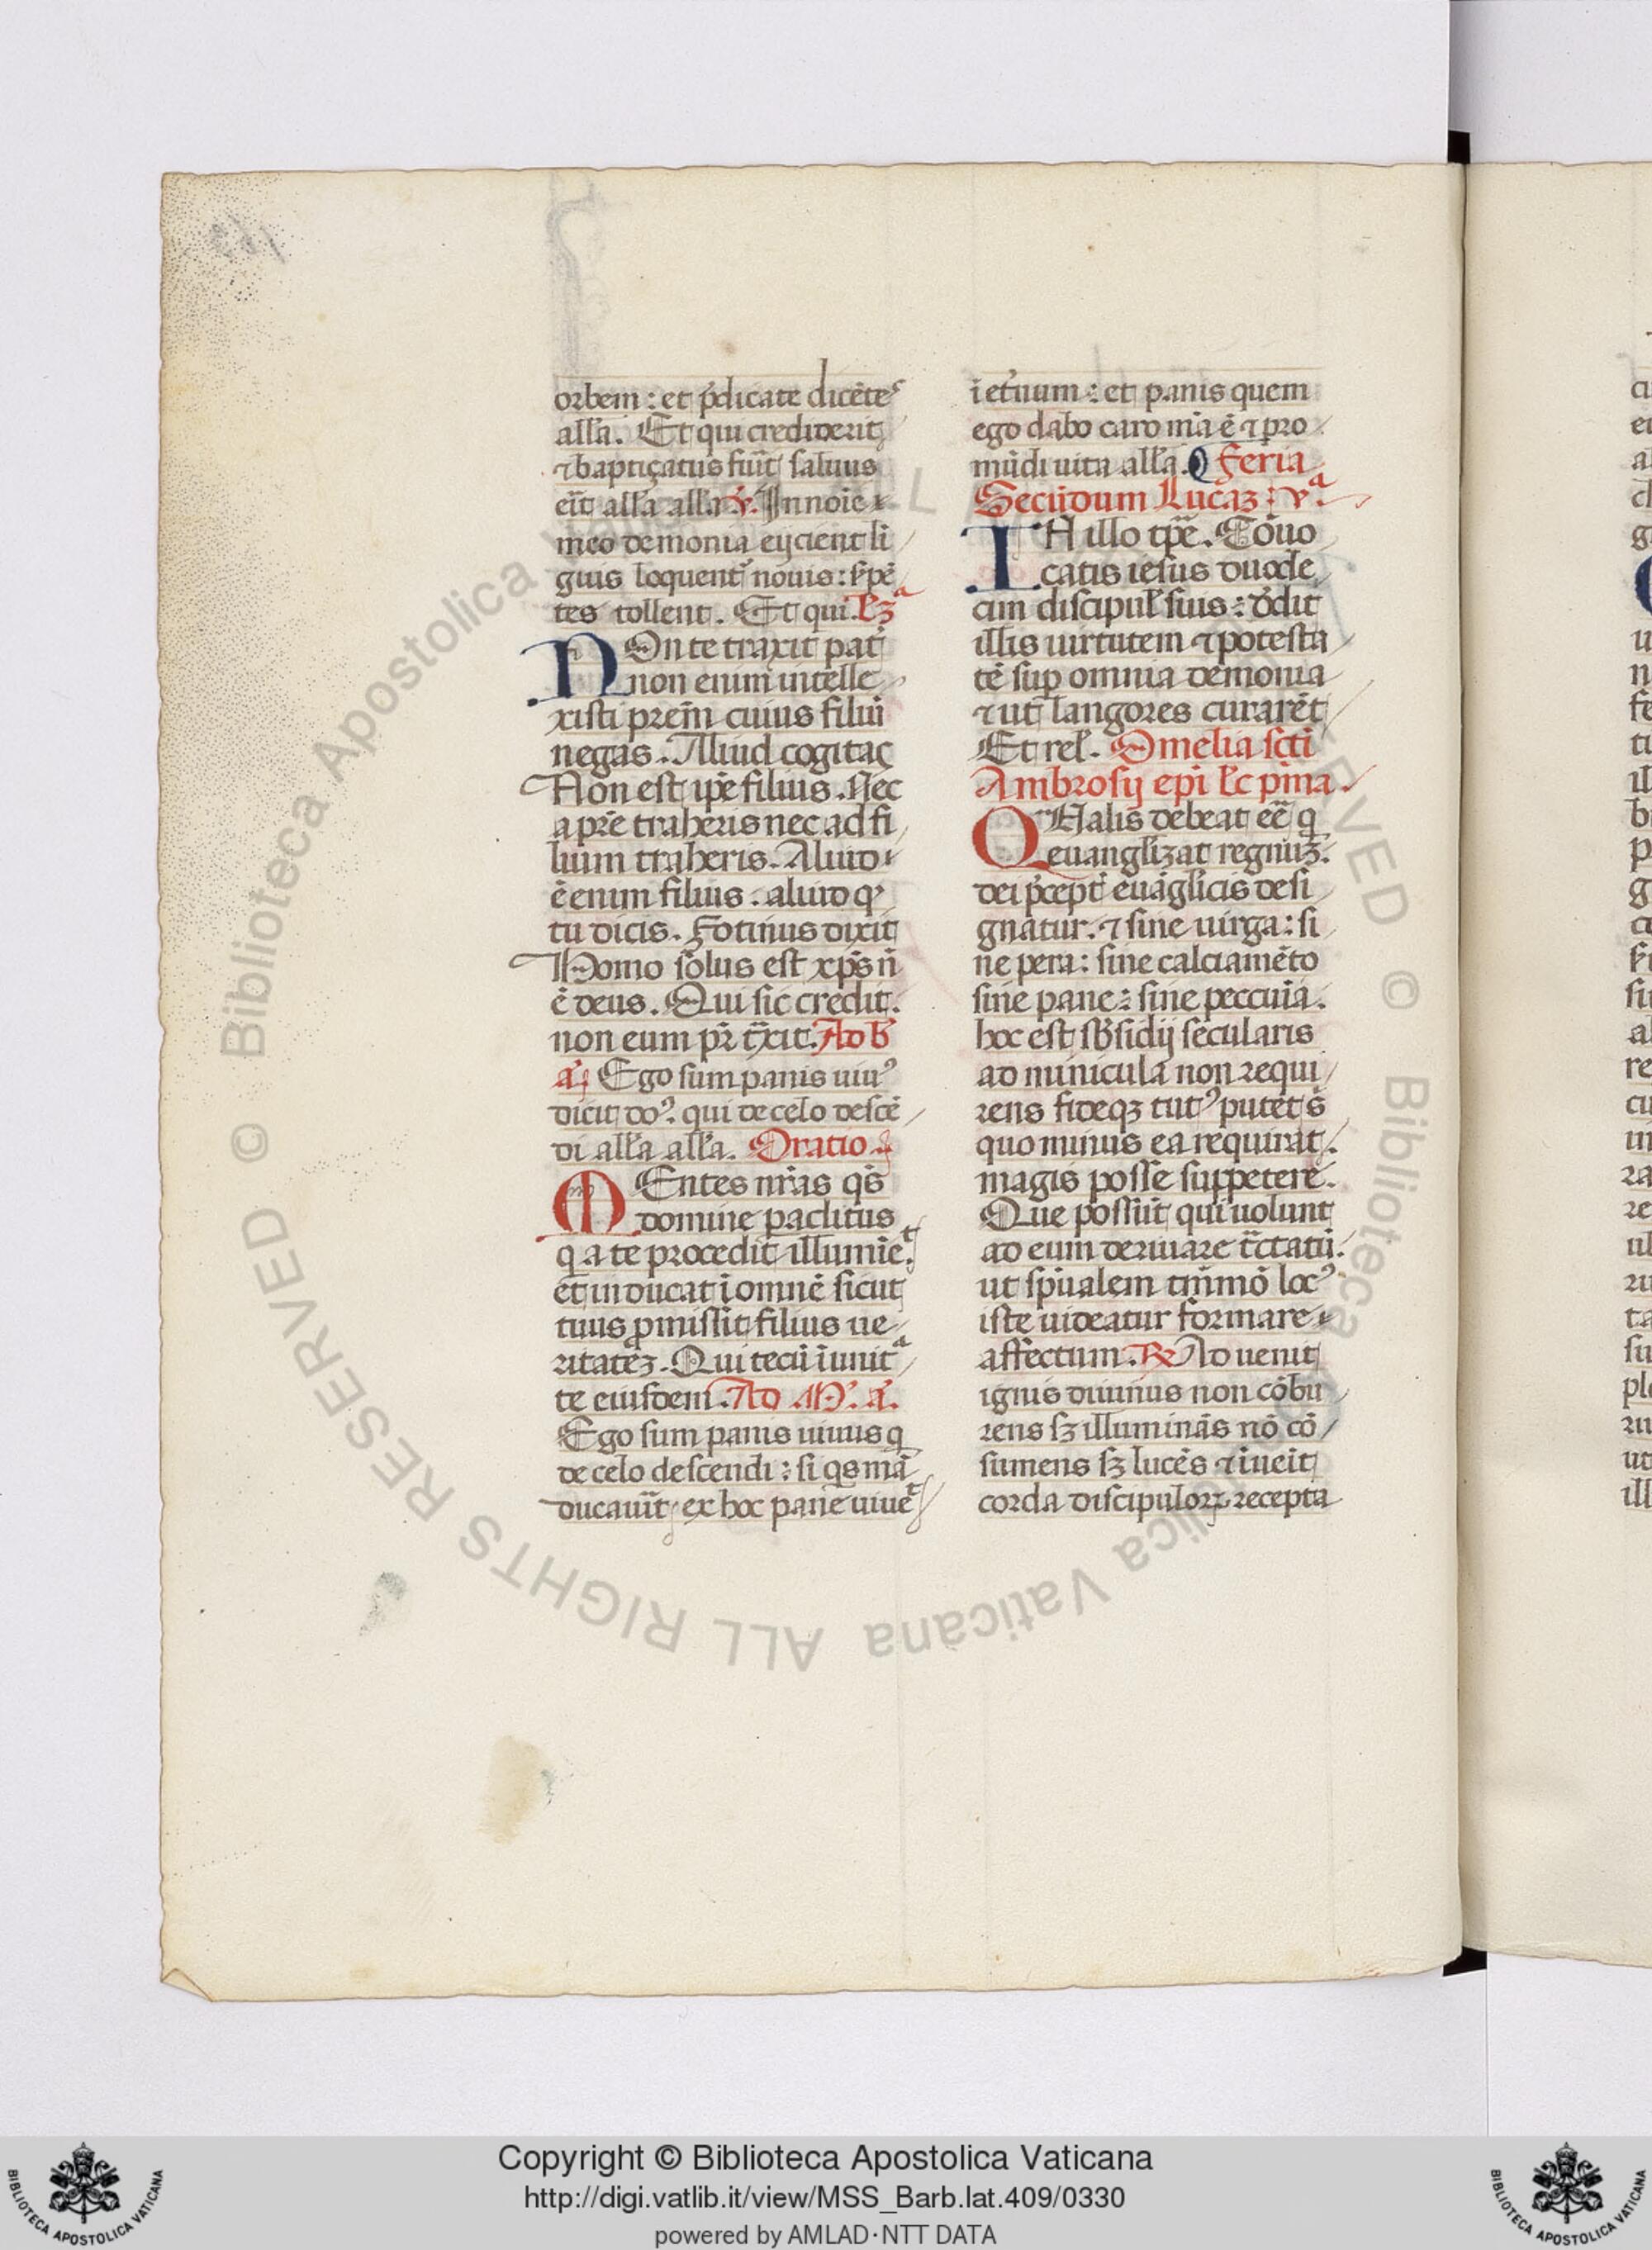 orbem : et p̄dicate dicēte
all'a. Et qui crediderit
⁊ baptiçatus fu͛it saluus
er̄it all'a all'a. ℣. In noīe
meo demonia eijcient li
guis loquent᷑ nouis : s̄pē
tes tollent. Et qui. Lꝫª
NOn te traxit pat͛
non enim intelle
xisti prem̄ cuius filiū
negas. Aliud cogitas
Non est ip̄e filius. Nec
a pr̄e traheris nec ad fi
lium traheris. Aliud
ē enim filius : aliud qꝰ
tu dicis. Fotinus dixit
Homo solus est xp̄s n̄
ē deus. Qui sic credit.
non eum pr̄ t̄xit. Ad b͞
a᷑. Ego sum panis uiuꝰ
dicit do᷑. qui de celo descē
di all'a all'a. Oratio
MEntes nr̄as qs̄
domine paclitus
q̄ a te procedit illumīeᵗ
et inducat ī omnē sicut
tuus ꝓmissit filius ue
ritateꝫ. Qui tecū ī unitª
te eiusdem. Ad M᷑. a᷑.
Ego sum panis uiuus q̄
de celo descendi : si qs mā
ducauīt ex hoc pane uiueᵗ
ī et͛num : et panis quem
ego dabo caro m̄a ē ⁊ pro
mūdi uita all'a. Feria
Secūdum Lucaꝫ : vª.
IN illo tp̄e. Cōuo
catis iesus duode
cim discipul' suis : d̄dit
illis uirtutem ⁊ potesta
tē suꝑ omnia demonia
⁊ ut langores curarēt
Et rel'. Omelia sc̄ti
Ambrosij ep̄i lc̄ p͛ma.
QUalis debeat eē q̄
euangliꝫat regnuꝫ.
dei p̄cept᷑ euāgl'icis desi
gnatur. ⁊ sine uirga : si
ne pera : sine calciamēto
sine pane : sine peccuīa.
hoc est sb̄sidij secularis
ad minicula non requi
rens fideqꝫ tutꝰ putet s̄
quo minus ea requirat.
magis posse suppetere.
Que possūt qui uolunt
ad eum deriuare t̄ctatū.
ut sp̄ualem tm̄mō locꝰ
iste uideatur formare
affectum. ℞ Aduenit
ignis diuinus non cōbu
rens sꝫ illuminās nō cō
sumens sꝫ lucēs ⁊ īueīt
corda discipuloꝝ recepta
Copyright © Biblioteca Apostolica Vaticana
http://digi.vatlib.it/view/MSS_Barb.lat.409/0330
powered by AMLAD·NTT DATA